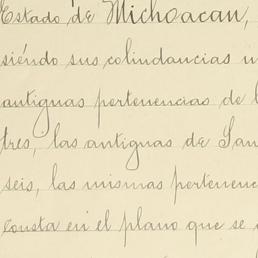 Estado de Michoacan,
siéndo sus colindancias
antiguas pertenencias de
tres, las antiguas de San
seis, las mismas pertenenc
consta en el plano que se